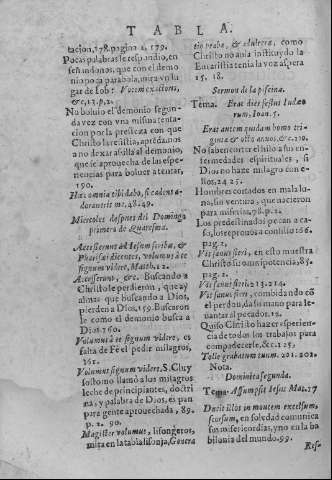 TABLA.
tacion, 178. pagina 2. 179.
Pocas palabras le respondio, en
señandonos, que con el demo
nio poca parabola, mira vn lu
gar de Iob: Votem
&c, 13. p. 2.
No boluio el demonio segun-
da vez con vna misma tenta-
cion por la presteza con que
Christo la resistia, apredamos
a no dexarassi al demonio,
que se aprouecha de las espe-
ranças para boluer a tentar,
190.
Hæc omnia tibi dabo, si cadens a-
doraueris me, 48. 49.
Miercoles despues del Domingo
primero de Quaresma.
Accesserunt ad Iesum scribæ, &
Pharisæi dicentes, volumus à te
signum videre, Matth. 12.
Accesserunt, &c. Buscando a
Christo le perdieron, que ay
almas que buscando a Dios,
pierden a Dios, 159. Buscaron
le como el demonio busca a
Dios 160.
Volumus à te signum videre, es
falta de Fè el pedir milagros,
161.
Volumus signum videre, S. Chry
sostomo llamò a los milagros
leche de principiantes, doctri
na, y palabra de Dios, es pan
para gente aprouechada, 89.
p. 2. 90.
Magister volumus, lisongeros,
mira en la tabla lisonja, Genera
tio praba, & adultera, como
Christo no auia instituydo la
Eucaristia tenia la voz aspera
15. 18.
Sermon de la piscina.
Tema. Erat dies festus Iudæo
rum, Ioan. 5.
Erat autem quidam homo trigi-
ginta & octo annos, &c. 210.
No saben contar el hilo a sus en
fermedades espirituales, si
Dios no haze milagro con e-
llos, 24. 25.
Hombres cortados en mala lu-
na, sin ventura, que nacieron
para miseria, 98. p. 2.
Los predestinados pecan a ca-
so, los reprouos a consilio 166.
pag. 2.
Vis sanus fieri, en esto muestra
Christo su omnipotencia, 85.
pag. 2.
Vis sanus fieri 13. 214.
Vis sanus fieri, combidando cõ
el perdon, da su mano para le-
uantar al pecador. 12.
Quiso Christo hazer esperien-
cia de todos los trabajos para
compadecerse, &c. 125.
Tolle grabatum tuum. 201. 202.
Nota.
Dominica segunda.
Tema. Assumpsit Iesus Mat. 17
Duxit illos in montem excelsum,
seorsum, en soledad comunica
sus misericordias, y no en la ba
bilonia del mundo. 99.